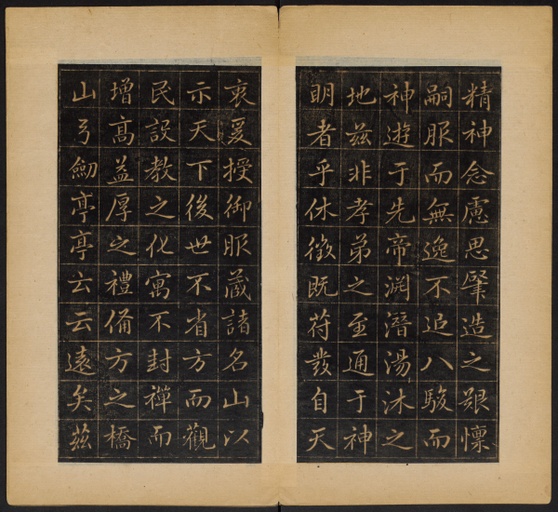 精神念慮思肇造之艱懍
嗣服而無逸不追八駿而
神遊于先帝淵潛湯沐之
地茲非孝弟之至通于神
明者乎休徵既苻發自天
衷爰授御服藏諸名山以
示天下後世不省方而觀
民設教之化寓不封禪而
增高益厚之禮俻方之橋
山弓劒亭亭云云遠矣茲